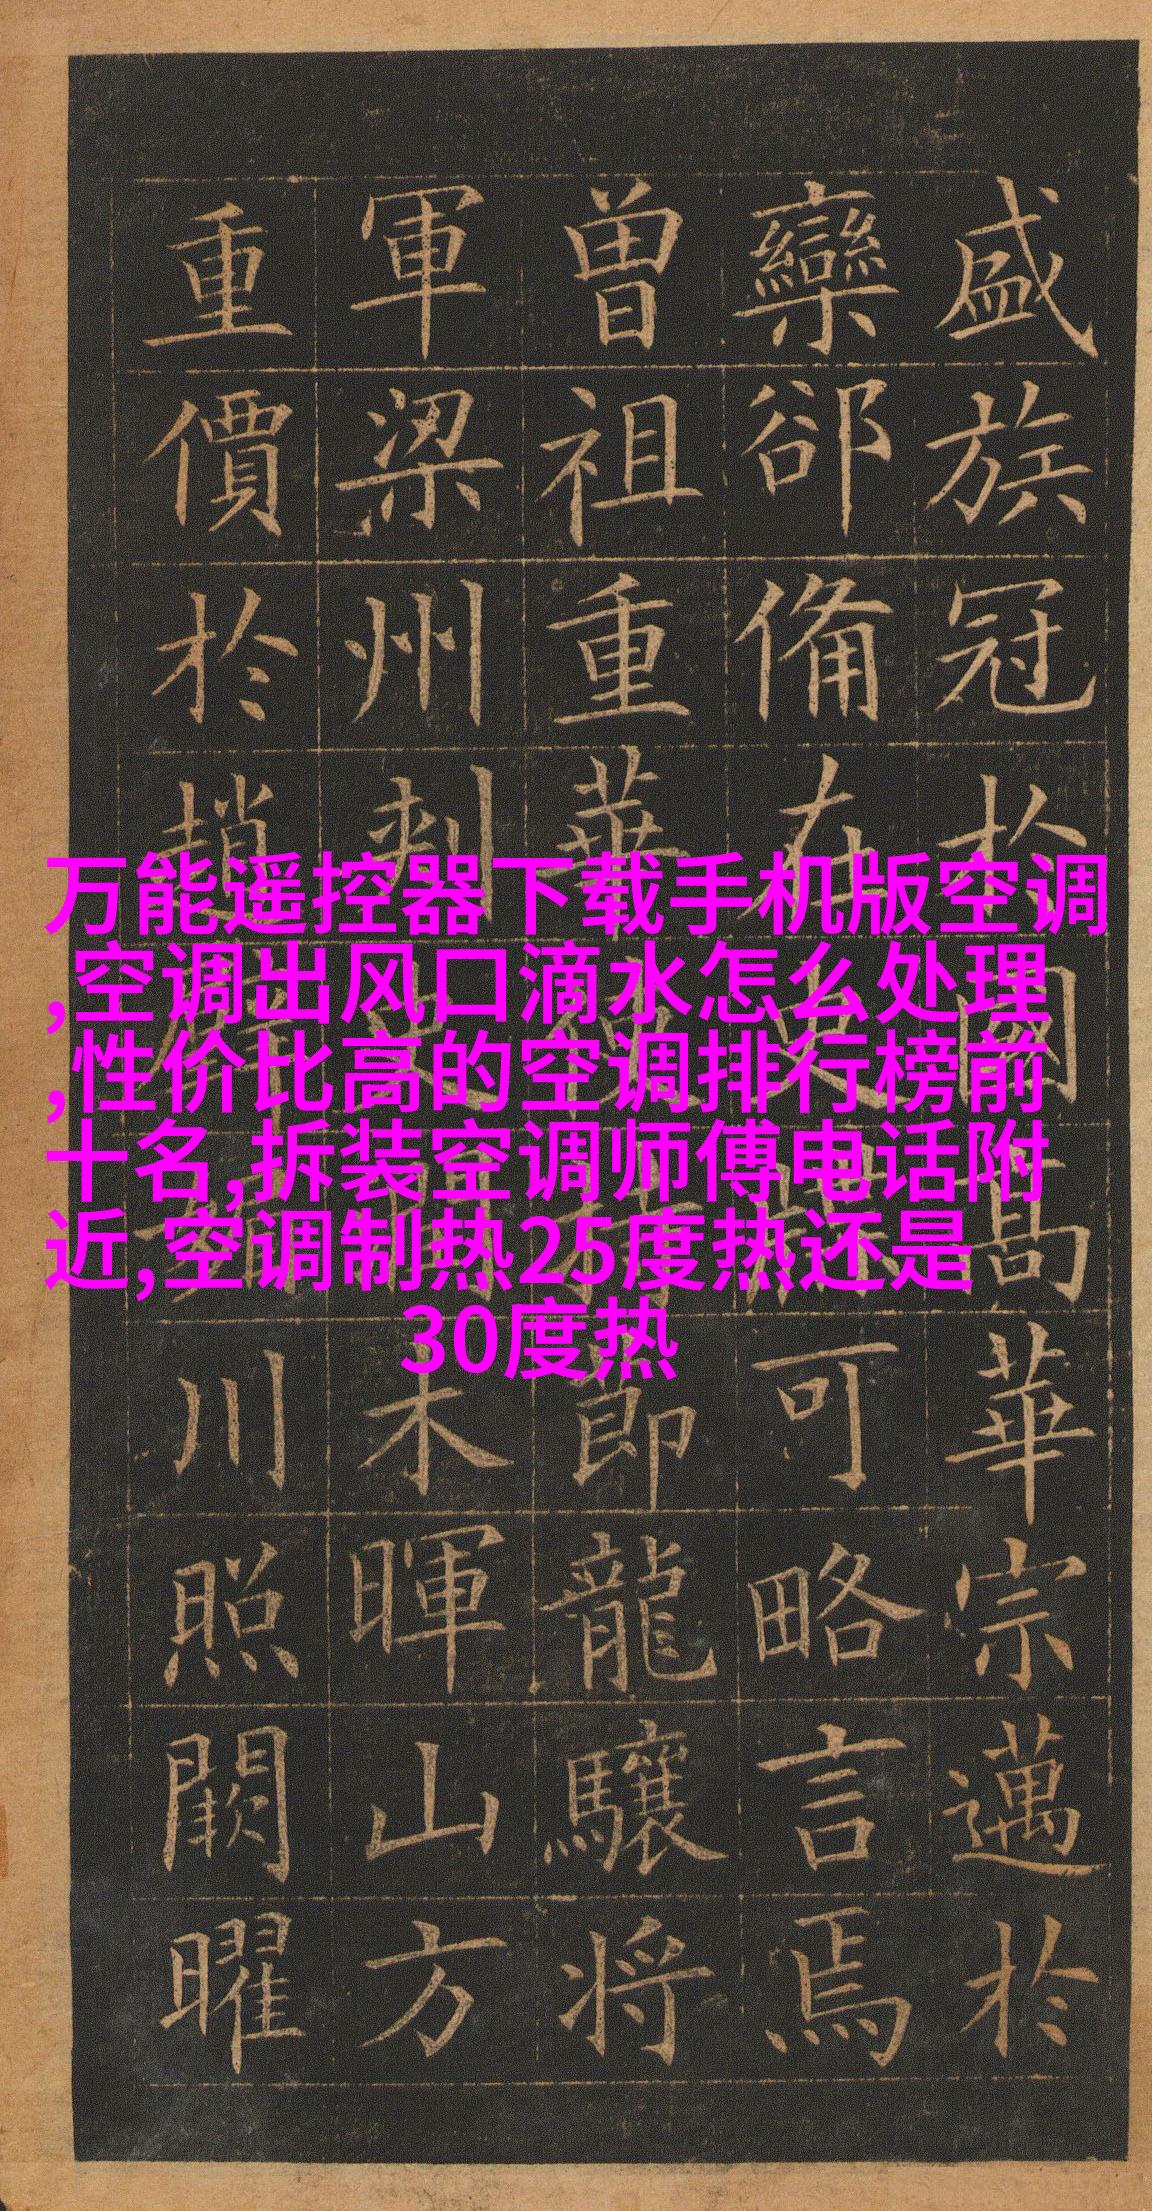 盛族冠於國高華宗邁於
欒郤備在史牒可略言焉
曾祖重華使持節龍驤将
軍梁州刺史潤木暉山方
重價於趙璧媚川照闕曜
万能遥控器下载手机版空调
,空调出风口滴水怎么处理
,性价比高的空调排行榜前
十名,拆装空调师傅电话附
近,空调制热25度热还是
30度热